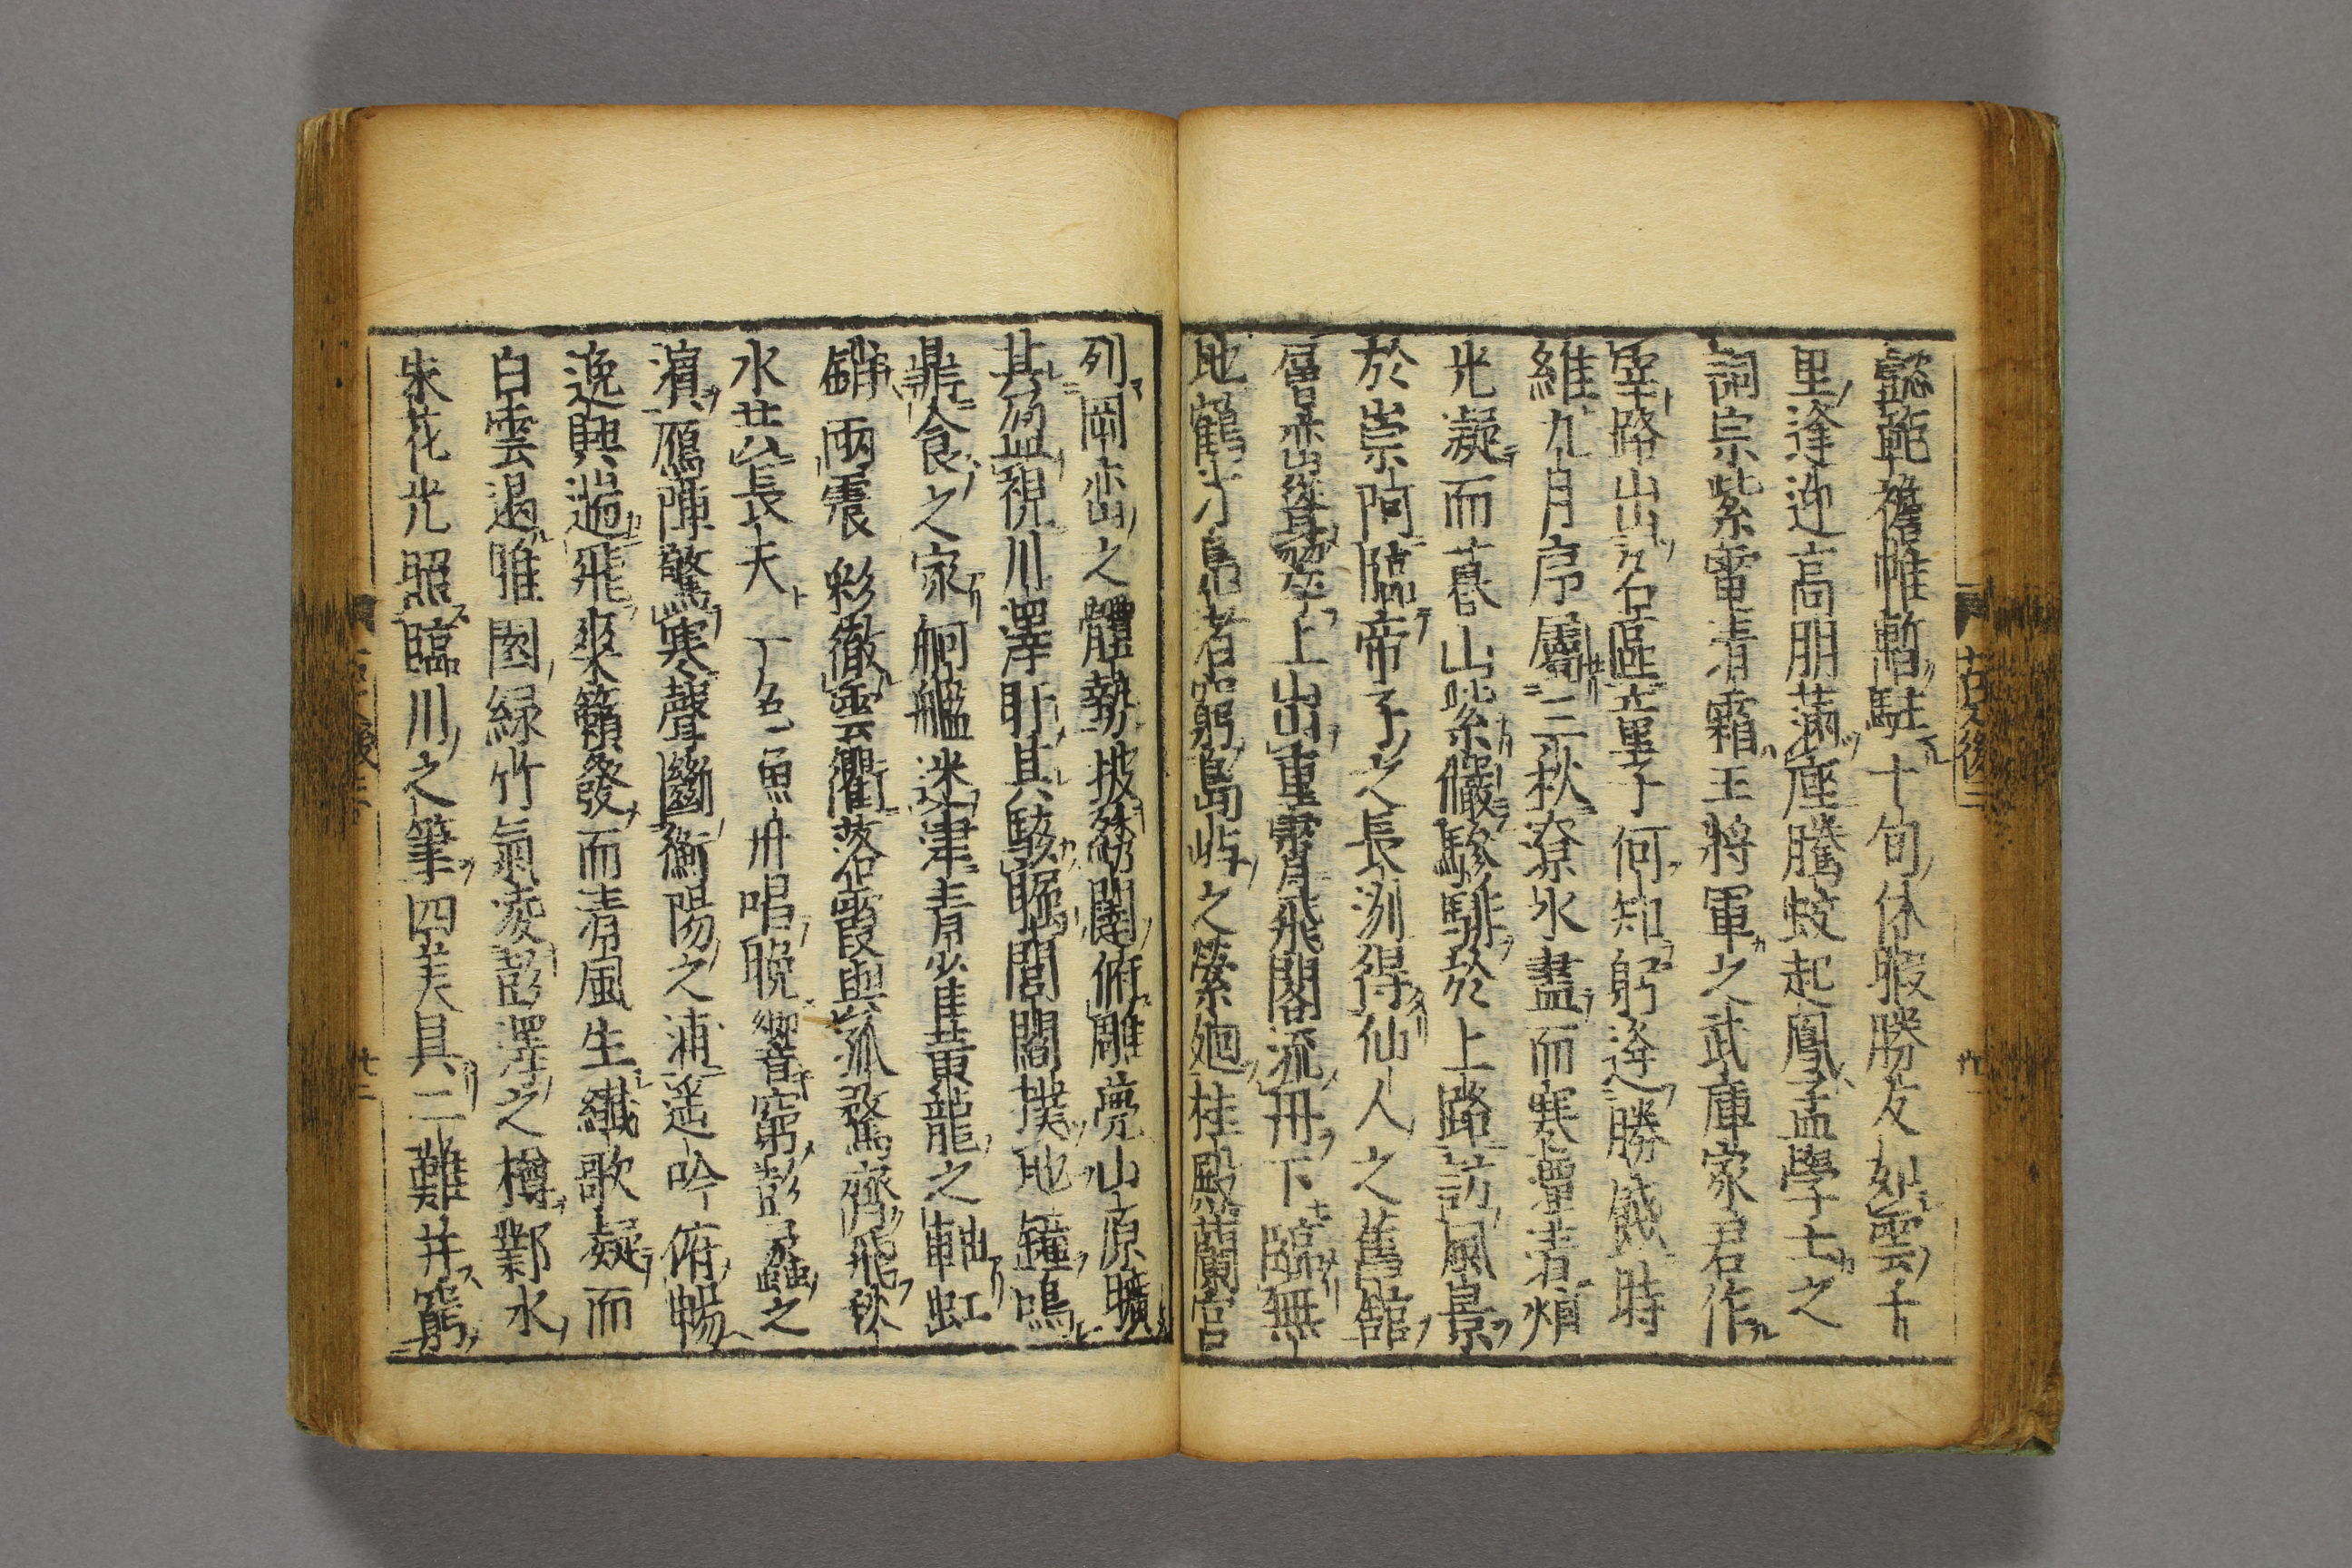 懿範襜帷暫駐十旬休暇勝友如雲千
里逢迎高朋滿座騰蛟起鳳孟學士之
詞宗紫電清霜王將軍之武庫家君作
宰路出名區童子何知躬逢勝餞時
維九月序屬三秋潦水盡而寒潭清煙
光凝而暮山紫儼驂騑於上路訪風景
於崇阿臨帝子之長洲得仙人之舊舘
層巒聳翠上出重霄飛閣流丹下臨無
地鶴汀鳧渚窮島嶼之縈廻桂殿蘭宮
列岡巒之體勢披綉闥俯雕甍山原曠
其盈視川澤盱其駭矚閭閻撲地鐘鳴
鼎食之家舸艦迷津青雀黃龍之軸虹
銷雨霽彩徹雲衢落霞與孤鶩齊飛秋
水共長天一色漁舟唱晚響窮彭蠡之
濱鴈陣驚寒聲斷衡陽之浦遥吟俯暢
逸興遄飛爽籟發而清風生纖歌凝而
白雲遏雎園緑竹氣凌彭澤之樽鄴水
朱花光照臨川之筆四美具二難并窮
古文後二